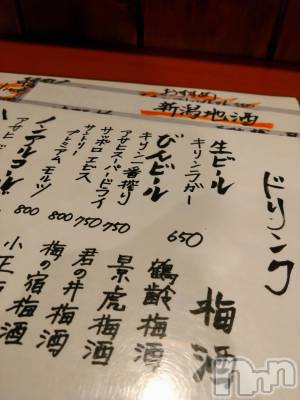 おすすめ
新潟地酒
ドリンク
生ビール
キリンラガー
650
びんビール
キリン一番搾り
アサヒスーパードライ 750
サッポロエビス 750
サントリープレミアムモルツ 800
ノンアルコール
800
アサヒ
梅酒
鶴齢梅酒
景虎梅酒
君の井梅酒
梅の宿梅酒
小